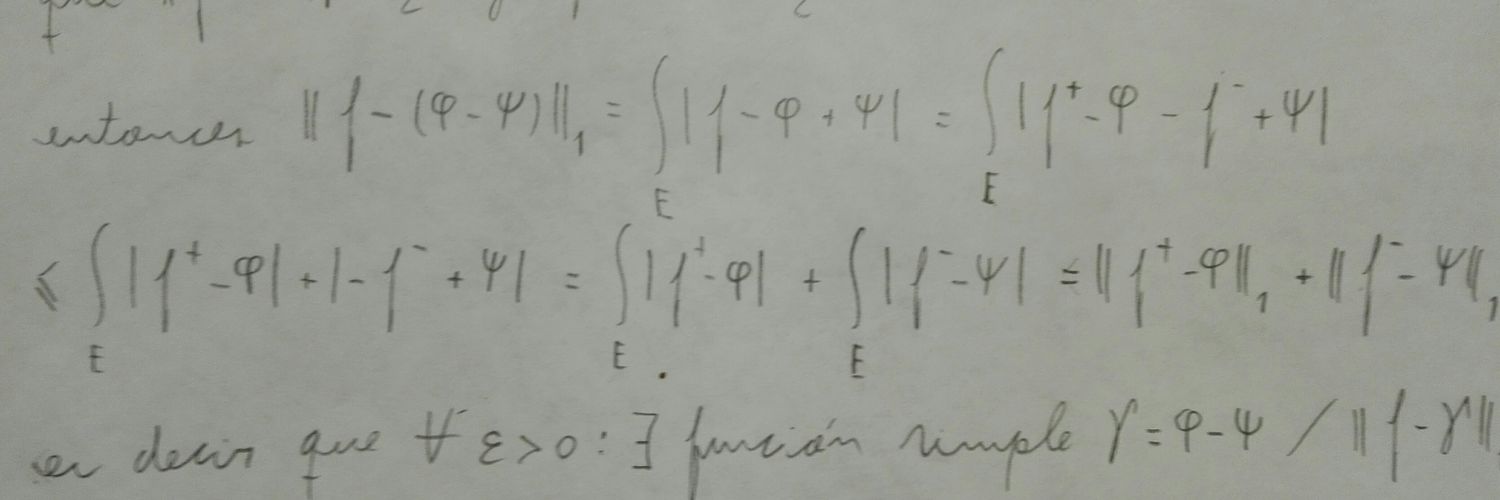 entonces ‖f - (φ - ψ)‖₁ = ∫_E |f - φ + ψ| = ∫_E |f⁺ - φ - f⁻ + ψ|
≤ ∫_E |f⁺ - φ| + |-f⁻ + ψ| = ∫_E |f⁺ - φ| + ∫_E |f⁻ - ψ| = ‖f⁺ - φ‖₁ + ‖f⁻ - ψ‖₁
es decir que ∀ ε > 0 : ∃ función simple γ = φ - ψ / ‖f - γ‖